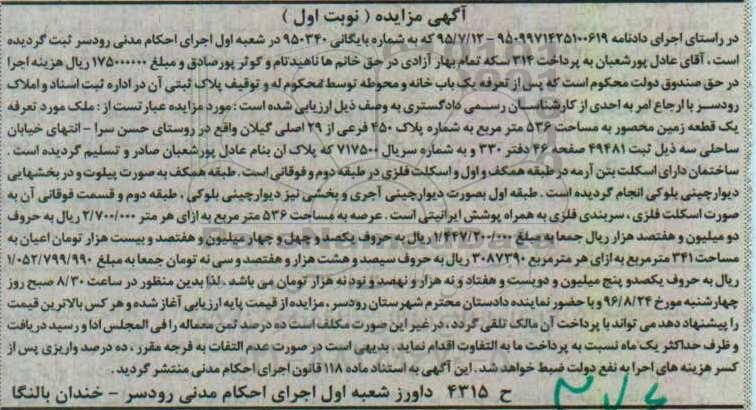 آگهی مزایده ( نوبت اول )
در راستای اجرای دادنامه ۹۵۰۹۹۷۱۴۲۵۱۰۰۶۱۹ – ۹۵/۷/۱۲ که به شماره بایگانی ۹۵۰۳۴۰ در شعبه اول اجرای احکام مدنی رودسر ثبت گردیده
است ، آقای عادل پورشعبان به پرداخت ۳۱۴ سکه تمام بهار آزادی در حق خانم ها ناهیدنام و کوثر پورصادق و مبلغ ۱۷۵۰۰۰۰۰۰ ریال هزینه اجرا
در حق صندوق دولت محکوم است که پس از تعرفه یک باب خانه و محوطه توسط محکوم له و توقیف پلاک ثبتی آن در اداره ثبت اسناد و املاک
رودسر با ارجاع امر به احدی از کارشناسان رسمی دادگستری به وصف ذیل ارزیابی شده است : مورد مزایده عبارتست از : ملک مورد تعرفه
یک قطعه زمین محصور به مساحت ۵۳۶ متر مربع به شماره پلاک ۴۵۰ فرعی از ۲۹ اصلی گیلان واقع در روستای حسن سرا – انتهای خیابان
ساحلی سه ذیل ثبت ۴۹۴۸۱ صفحه ۴۶ دفتر ۳۳۰ و به شماره سریال ۷۱۷۵۰۰ که پلاک ان بنام عادل پورشعبان صادر و تسلیم گردیده است .
ساختمان دارای اسکلت بتن آرمه در طبقه همکف و اول و اسکلت فلزی در طبقه دوم و فوقانی است . طبقه همکف به صورت پیلوت و در بخشهایی
دیوارچینی بلوکی انجام گردیده است . طبقه اول بصورت دیوارچینی آجری و بخشی نیز دیوارچینی بلوکی ، طبقه دوم و قسمت فوقانی آن به
صورت اسکلت فلزی ، سربندی فلزی به همراه پوشش ایرانیتی است . عرصه به مساحت ۵۳۶ متر مربع به ازای هر متر ۲/۷۰۰/۰۰۰ ریال به حروف
دو میلیون و هفتصد هزار ریال جمعا به مبلغ ۱/۴۴۷/۲۰۰/۰۰۰ ریال به حروف یکصد و چهل و چهار میلیون و هفتصد و بیست هزار تومان اعیان به
مساحت ۳۴۱ متر مربع به ازای هر متر مربع ۳۰۸۷۳۹۰ ریال به حروف سیصد و هشت هزار و هفتصد و سی نه تومان جمعا به مبلغ ۱/۰۵۲/۷۹۹/۹۹۰
ریال به حروف یکصدو پنج میلیون و دویست و هفتاد و نه هزار و نهصد و نود نه هزار تومان می باشد . لذا بدین منظور در ساعت ۸/۳۰ صبح روز
چهارشنبه مورخ ۹۶/۸/۲۴ و با حضور نماینده دادستان محترم شهرستان رودسر ، مزایده از قیمت پایه ارزیابی آغاز شده و هر کس بالاترین قیمت
را پیشنهاد دهد می تواند با پرداخت آن مالک تلقی گردد ، در غیر این صورت مکلف است ده درصد ثمن معماله را فی المجلس ادا و رسید دریافت
و ظرف حداکثر یک ماه نسبت به پرداخت ما به التفاوت اقدام نماید . بدیهی است در صورت عدم التفات به فرجه مقرر ، ده درصد واریزی پس از
کسر هزینه های اجرا به نفع دولت ضبط خواهد شد . این آگهی به استناد ماده ۱۱۸ قانون اجرای احکام مدنی منتشر گردید .
ح ۴۳۱۵ داورز شعبه اول اجرای احکام مدنی رودسر – خندان بالنگا